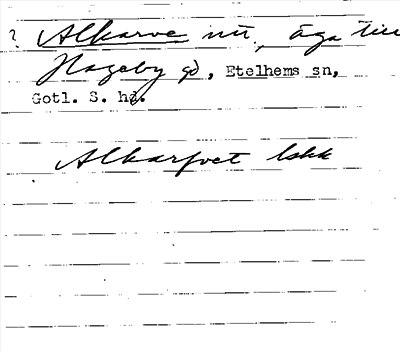 ? Alkarve mt., äga till
Hageby gd, Etelhems sn,
Gotl. S. hd.
Alkarfvet lskk